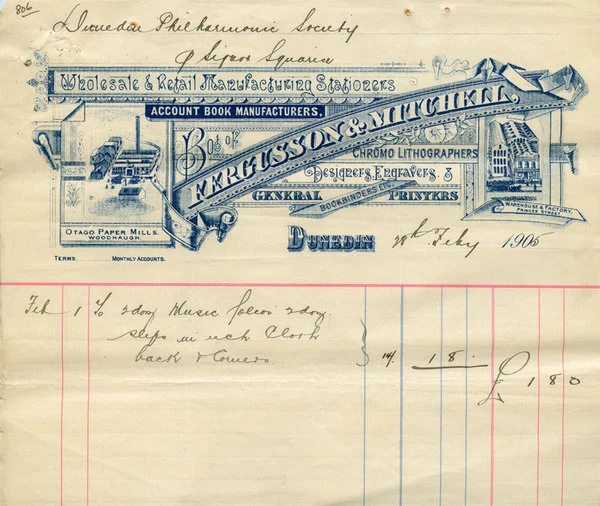 806
Dunedin Philharmonic Society
Signor Squarise
Wholesale & Retail Manufacturing Stationers
ACCOUNT BOOK MANUFACTURERS,
Bot of
FERGUSSON & MITCHELL,
CHROMO LITHOGRAPHERS
Designers, Engravers, &
BOOKBINDERS ETC
GENERAL PRINTERS
OTAGO PAPER MILLS.
WOODHAUGH.
WAREHOUSE & FACTORY,
PRINCES STREET
DUNEDIN 28th Feby 1905
TERMS MONTHLY ACCOUNTS.
Feb 1 To 2 doz Music folios 2 doz
slips in Cloth
back & Corners } 18
£ 1 8 0